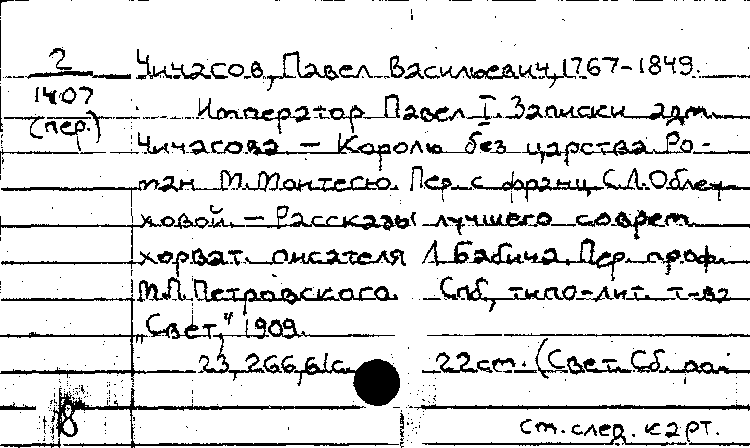 2
1407
(пер.)
Чичагов, Павел Васильевич, 1767-1849.
Император Павел I. Записки адм.
Чичагова. — Король без царства. Ро-
ман М. Монтегю. Пер. с франц. С.Л. Облеу-
ховой. — Рассказы лучшего соврем.
хорват. писателя Л. Бабича. Пер. проф.
М.П. Петровского. Спб, типо-лит. т-ва
„Свет,“ 1909.
23, 266, 61с. 22см. (Свет. Сб.
8
см. след. карт.